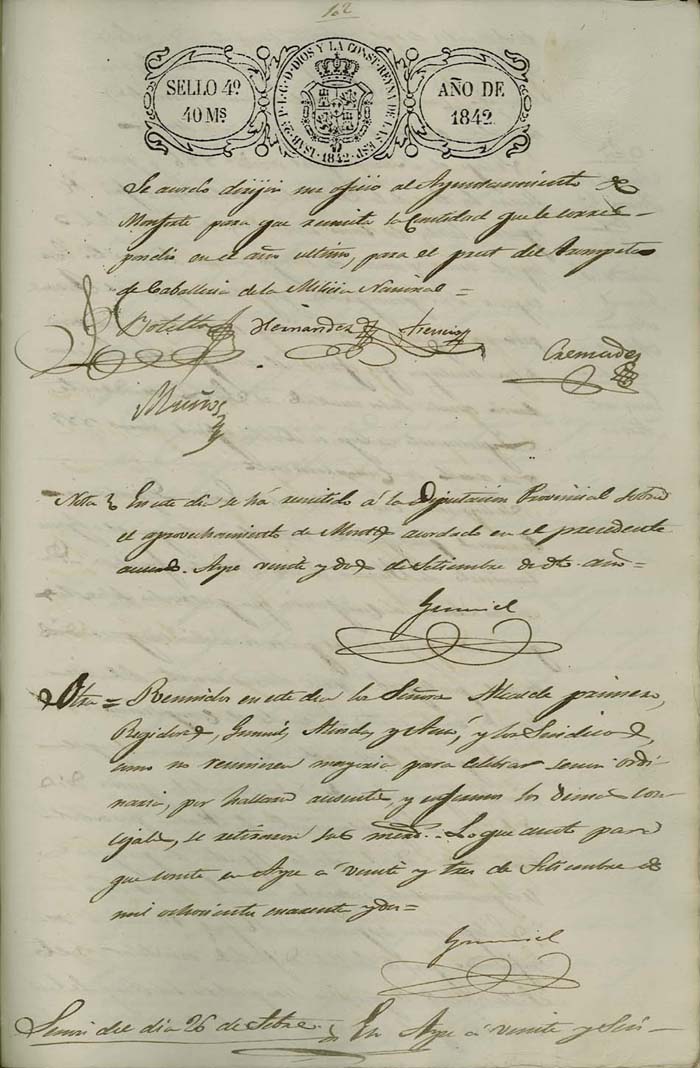 102
SELLO 4º
40 Ms
ISAB. 2ª P. L. G. D. DIOS Y LA CONST. REYNA DE LAS ESP.
1842
AÑO DE
1842.
Se acordo dirijir un oficio al Ayuntamiento de
Monforte para que remita la Cantidad que le corres-
pondio en el año ultimo, para el prest del trompeta
de Caballeria de la Milicia Nacional =
Botella Hernandez Asencio
Cremades
Muños
Nota En este dia se há remitido á la Diputacion Provincial sobre
el aprovechamiento de Montes acordado en el precedente
Aspe veinte y dos de Setiembre de dho. año =
Otra = Reunidos en este dia los Señores Alcalde primero,
Regidores, y los Sindicos,
como no reunieren mayoria para celebrar sesion ordi-
naria, por hallarse ausentes y enfermos los demas con-
cejales, se retiraron sus mercds. Lo que anoto para
que conste en Aspe á veinte y tres de Setiembre de
mil ochocientos cuarenta y dos =
Sesion del dia 26 de Setbre. En Aspe á veinte y seis